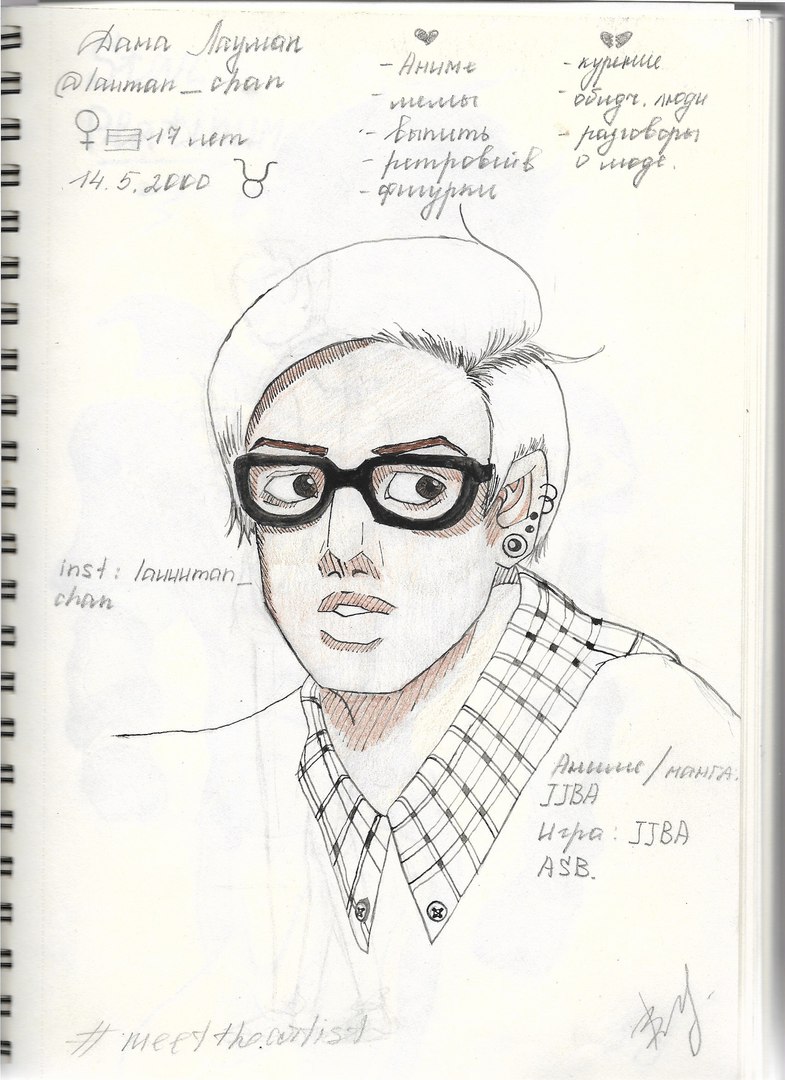 Дана Лауман
@lauman_chan
♀ 17 лет
14.5.2000 ♉
- Аниме
- мемы
- выпить
- ретровейв
- фигурки
- курение
- обидч. люди
- разговоры
о моде.
inst: lauuuman_
chan
Аниме/манга:
JJBA
Игра: JJBA
ASB.
#meettheartist